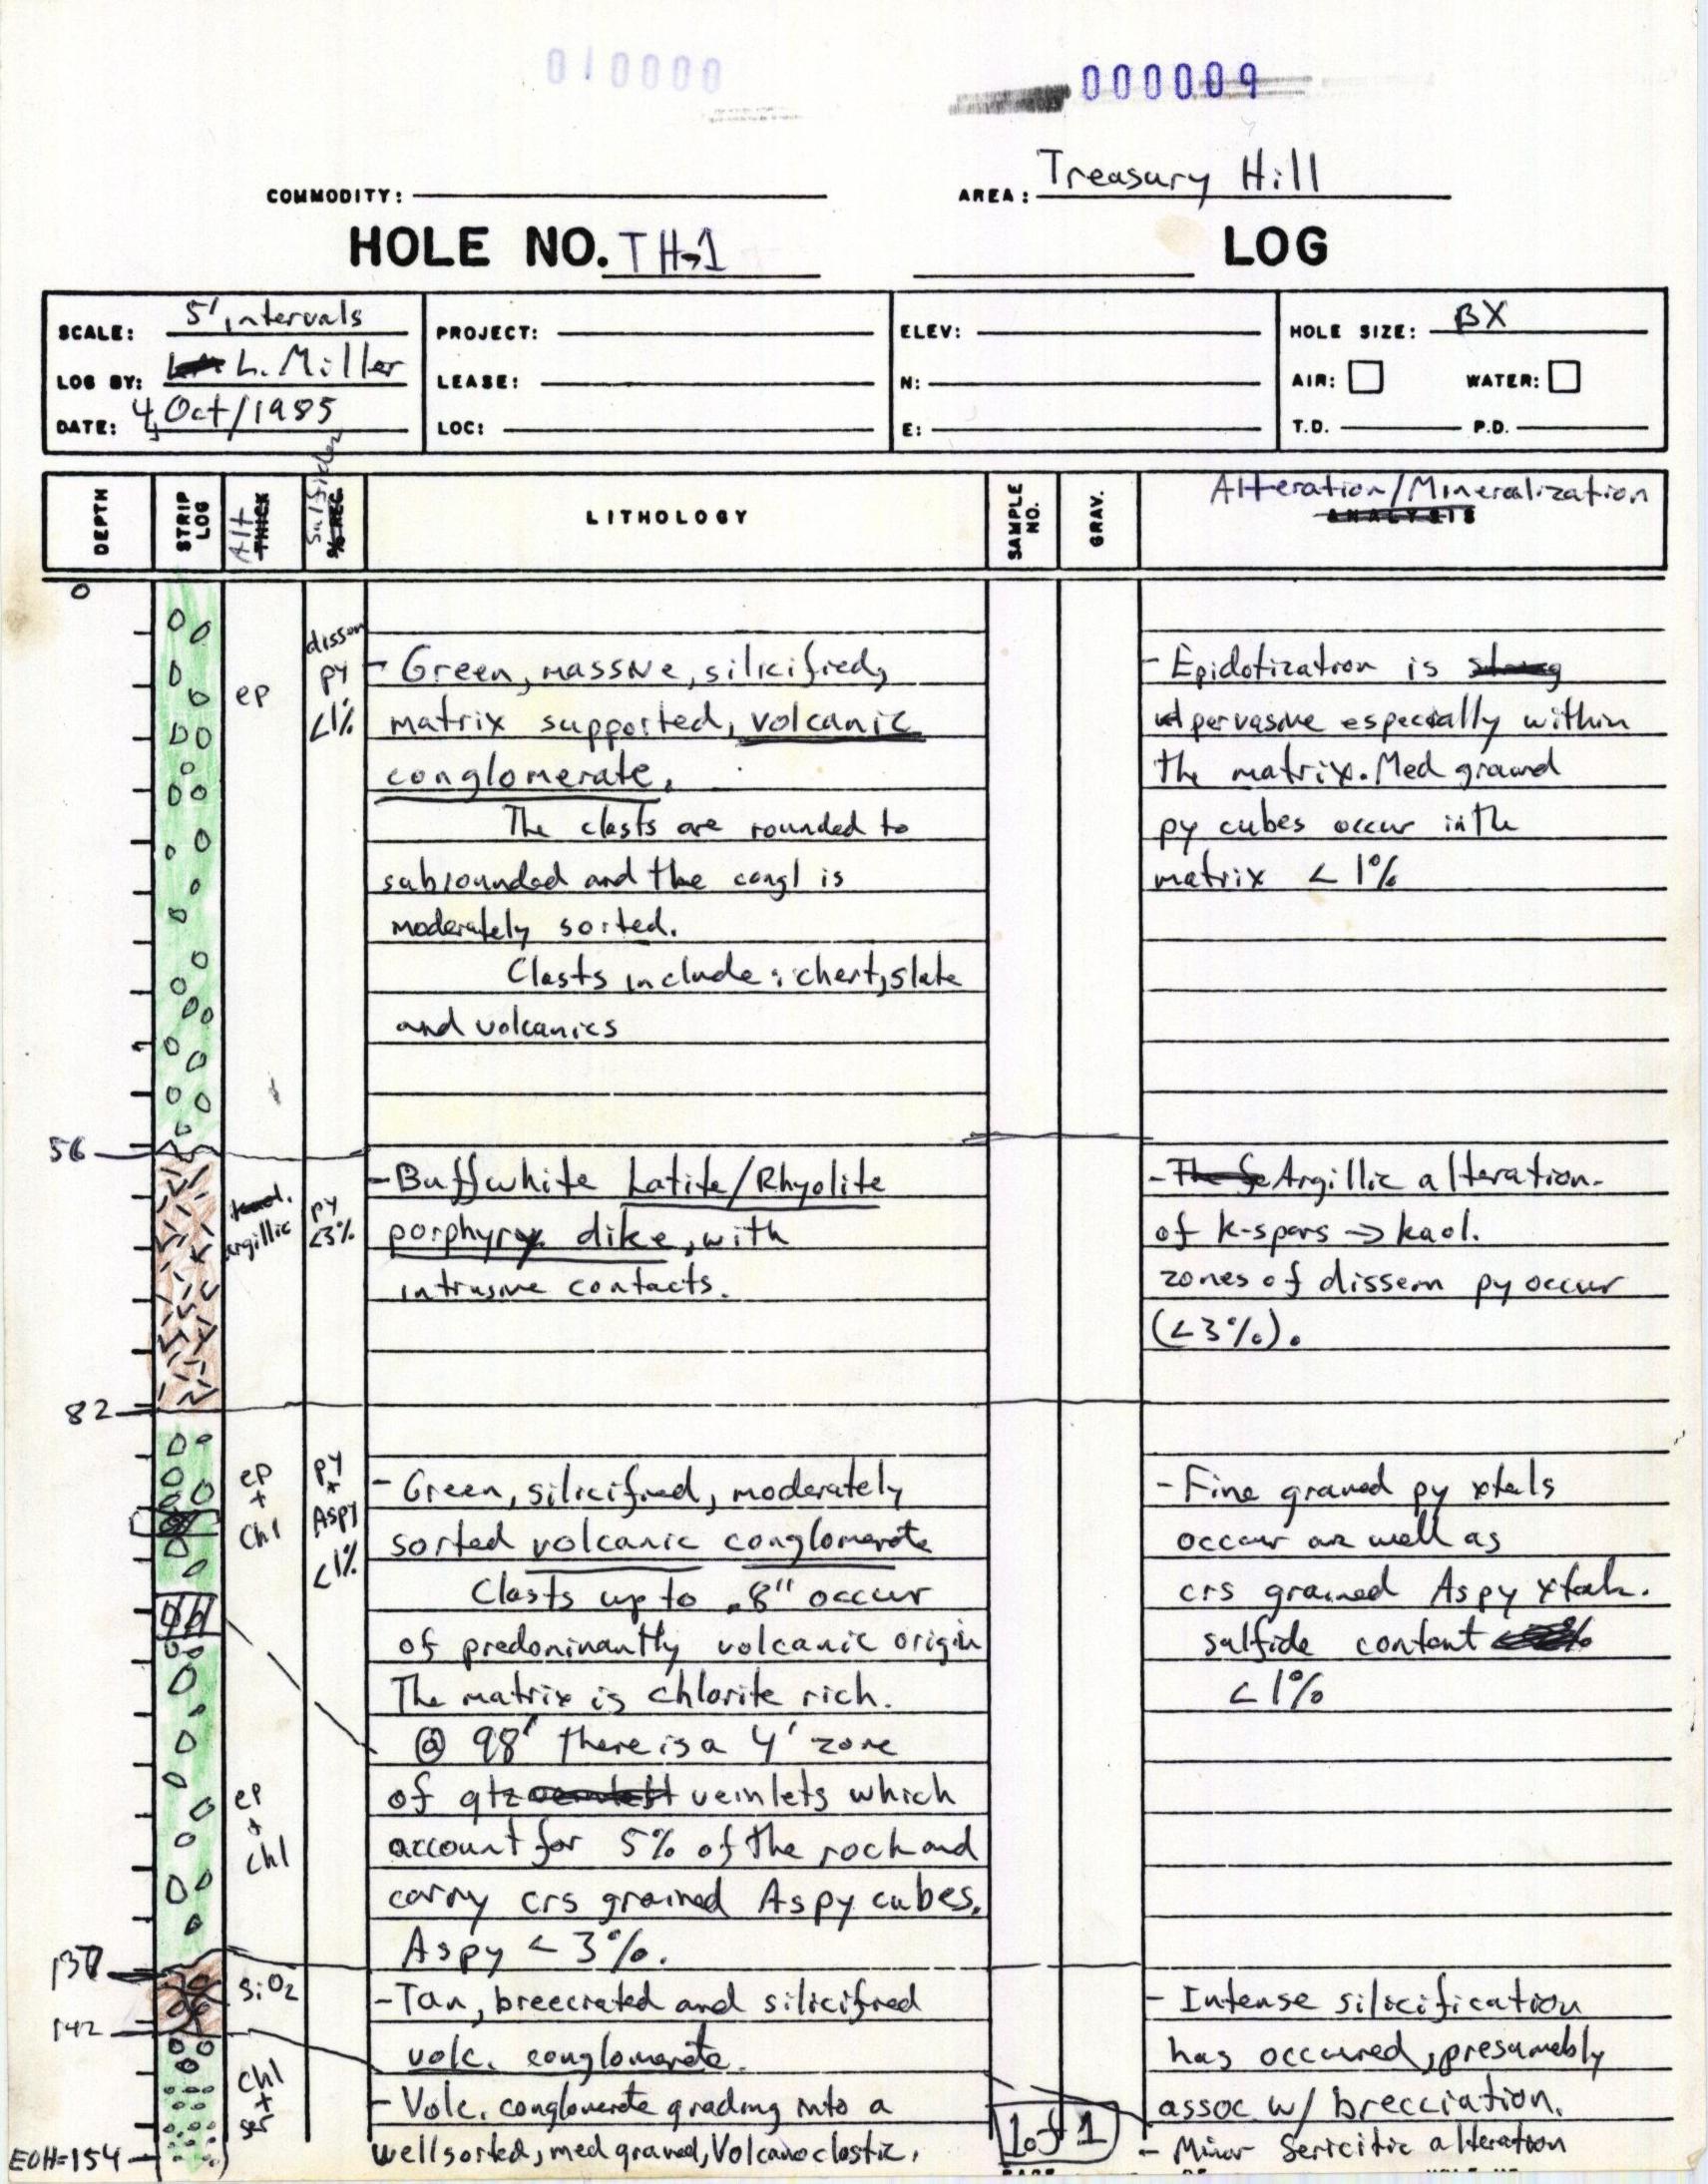 010000
000009
COMMODITY:
AREA: Treasury Hill
HOLE NO. TH-1 LOG
SCALE: 5' intervals
LOG BY: L. Miller
DATE: 4 Oct/1985
PROJECT:
LEASE:
LOC:
ELEV:
N:
E:
HOLE SIZE: BX
AIR: WATER:
T.D. P.D.
DEPTH
STRIP LOG
Alt THICK
Sulfides % REC.
LITHOLOGY
SAMPLE NO.
GRAV.
Alteration/Mineralization
ANALYSIS
0
ep
dissem
py
<1%
- Green, massive, silicified,
matrix supported, volcanic
conglomerate.
The clasts are rounded to
subrounded and the congl is
moderately sorted.
Clasts include: chert, slate
and volcanics
- Epidotization is strong
pervasive especially within
the matrix. Med graned
py cubes occur in the
matrix < 1%
56
kaol.
argillic
py
<3%
- Buff white Latite/Rhyolite
porphyry dike, with
intrusive contacts.
- Argillic alteration.
of k-spars -> kaol.
zones of dissem py occur
(<3%).
82
ep
+
Chl
py
+
Aspy
<1%
- Green, silicified, moderately
sorted volcanic conglomerate
Clasts up to .8" occur
of predominantly volcanic origin
The matrix is chlorite rich.
@ 98' there is a 4' zone
of qtz veinlets which
account for 5% of the rock and
carry crs grained Aspy cubes.
Aspy < 3%.
- Fine graned py xtals
occur as well as
crs grained Aspy xtals.
sulfide content
<1%
ep
+
chl
137
SiO2
- Tan, brecciated and silicified
volc. conglomerate.
- Intense silicification
has occured, presumably
assoc w/ brecciation.
142
chl
+
ser
- Volc. conglomerate grading into a
well sorted, med graned, Volcanoclastic.
1 of 1
- Minor Sericitic alteration
EOH=154